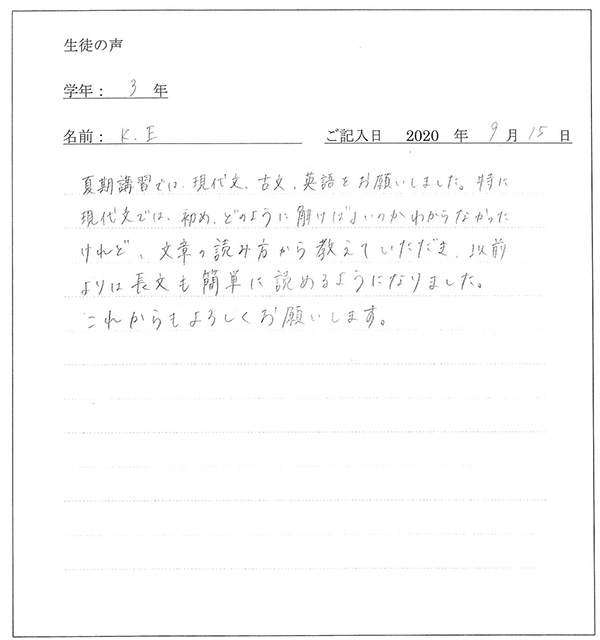 生徒の声
学年： 3 年
名前： K.E ご記入日 2020 年 9 月 15 日
夏期講習では、現代文、古文、英語をお願いしました。特に
現代文では、初め、どのように解けばよいのかわからなかった
けれど、文章の読み方から教えていただき、以前
よりは長文も簡単に読めるようになりました。
これからもよろしくお願いします。